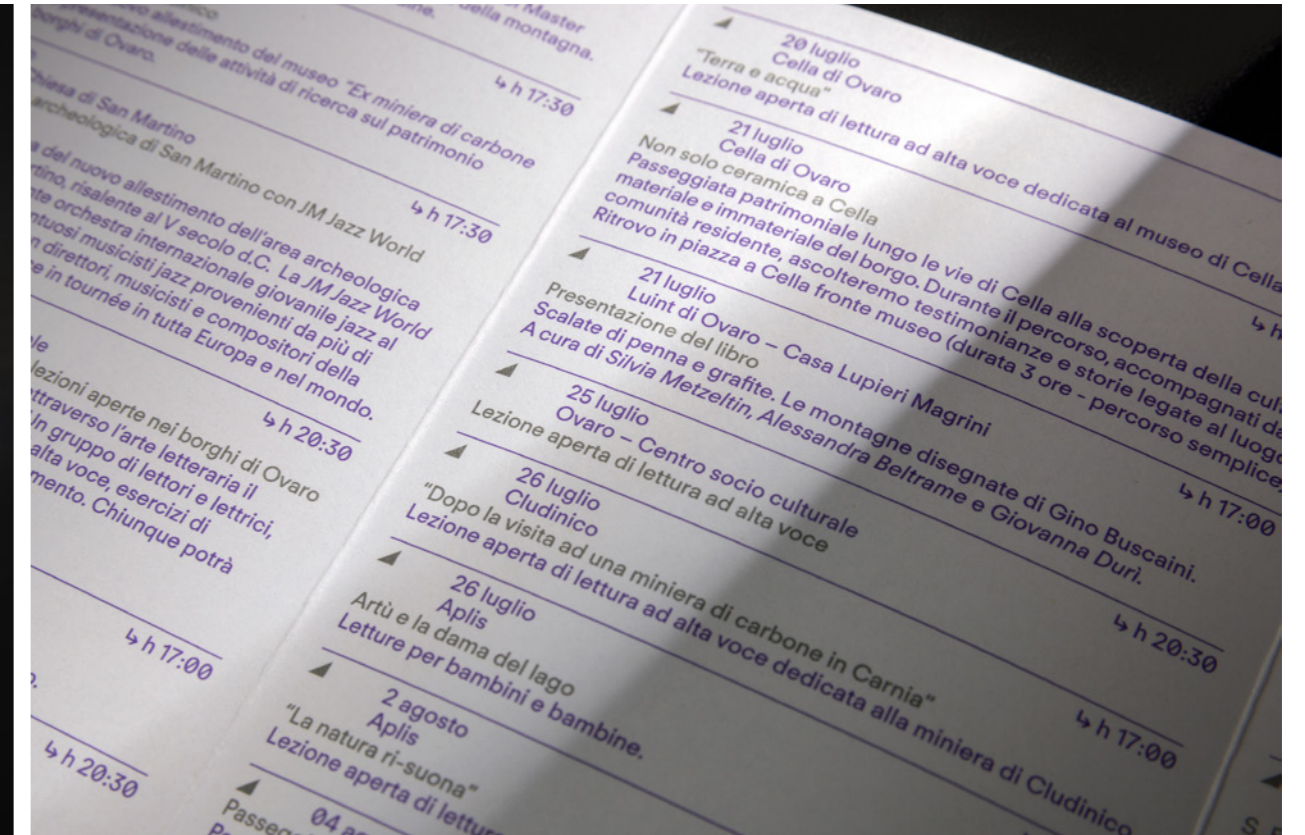 Master
della montagna.
↳ h 17:30
allestimento del museo "Ex miniera di carbone
presentazione delle attività di ricerca sul patrimonio
borghi di Ovaro.
↳ h 17:30
di San Martino
archeologica di San Martino con JM Jazz World
del nuovo allestimento dell'area archeologica
risalente al V secolo d.C. La JM Jazz World
orchestra internazionale giovanile jazz al
musicisti jazz provenienti da più di
direttori, musicisti e compositori della
in tournée in tutta Europa e nel mondo.
↳ h 20:30
lezioni aperte nei borghi di Ovaro
attraverso l'arte letteraria il
Un gruppo di lettori e lettrici,
alta voce, esercizi di
Chiunque potrà
↳ h 17:00
↳ h 20:30
20 luglio
Cella di Ovaro
"Terra e acqua"
Lezione aperta di lettura ad alta voce dedicata al museo di Cella
21 luglio ↳ h
Cella di Ovaro
Non solo ceramica a Cella
Passeggiata patrimoniale lungo le vie di Cella alla scoperta della
materiale e immateriale del borgo. Durante il percorso, accompagnati
comunità residente, ascolteremo testimonianze e storie legate al
Ritrovo in piazza a Cella fronte museo (durata 3 ore - percorso semplice,
21 luglio ↳ h 17:00
Luint di Ovaro – Casa Lupieri Magrini
Presentazione del libro
Scalate di penna e grafite. Le montagne disegnate di Gino Buscaini.
A cura di Silvia Metzeltin, Alessandra Beltrame e Giovanna Durì.
25 luglio ↳ h 20:30
Ovaro – Centro socio culturale
Lezione aperta di lettura ad alta voce
26 luglio ↳ h 17:00
Cludinico
"Dopo la visita ad una miniera di carbone in Carnia"
Lezione aperta di lettura ad alta voce dedicata alla miniera di Cludinico
26 luglio
Aplis
Artù e la dama del lago
Letture per bambini e bambine.
2 agosto
Aplis
"La natura ri-suona"
Lezione aperta di lettura
04